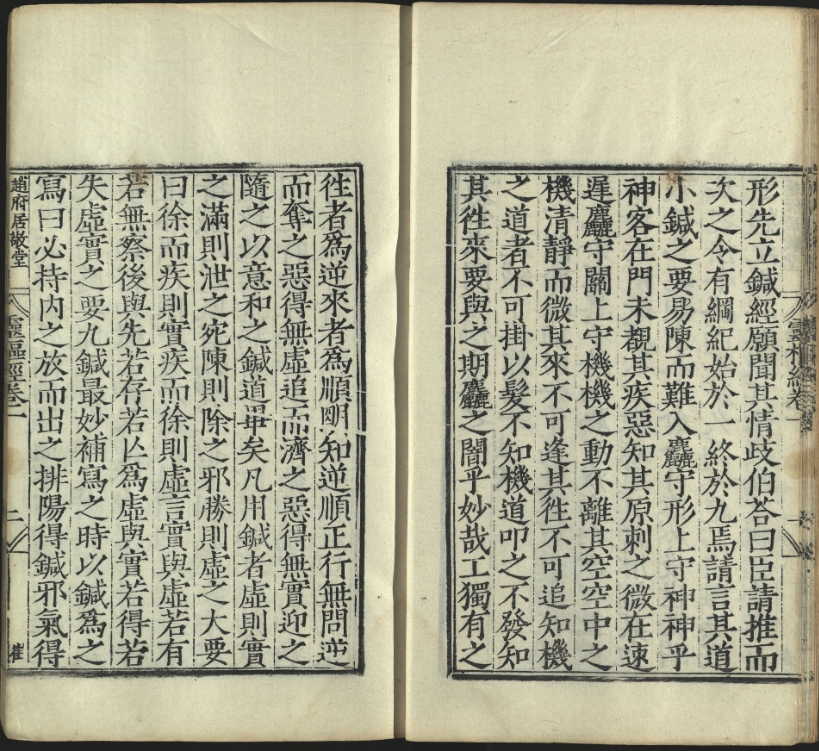 形先立鍼經願聞其情歧伯荅曰臣請推而
次之令有綱紀始於一終於九焉請言其道
小鍼之要易陳而難入麤守形上守神神乎
神客在門未覩其疾惡知其原刺之微在速
遲麤守關上守機機之動不離其空空中之
機清靜而微其來不可逢其徃不可追知機
之道者不可掛以髮不知機道叩之不發知
其徃來要與之期麤之闇乎妙哉工獨有之
徃者爲逆來者爲順明知逆順正行無問逆
而奪之惡得無虛追而濟之惡得無實迎之
隨之以意和之鍼道畢矣凡用鍼者虛則實
之滿則泄之宛陳則除之邪勝則虛之大要
曰徐而疾則實疾而徐則虛言實與虛若有
若無察後與先若存若亾爲虛與實若得若
失虛實之要九鍼最妙補寫之時以鍼爲之
寫曰必持内之放而出之排陽得鍼邪氣得
趙府居敬堂
靈樞經卷一
二